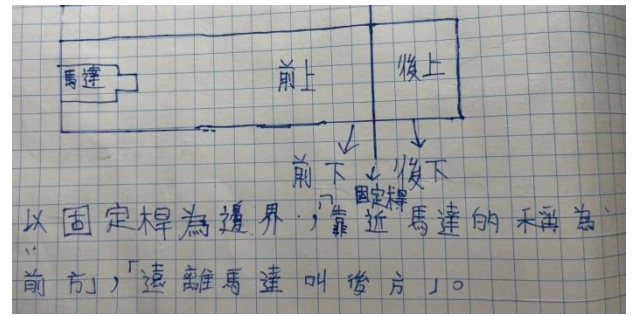 馬達
前上
後上
前下
後下
固定桿
以固定桿為邊界,「靠近馬達的稱為
前方」,「遠離馬達叫後方」。